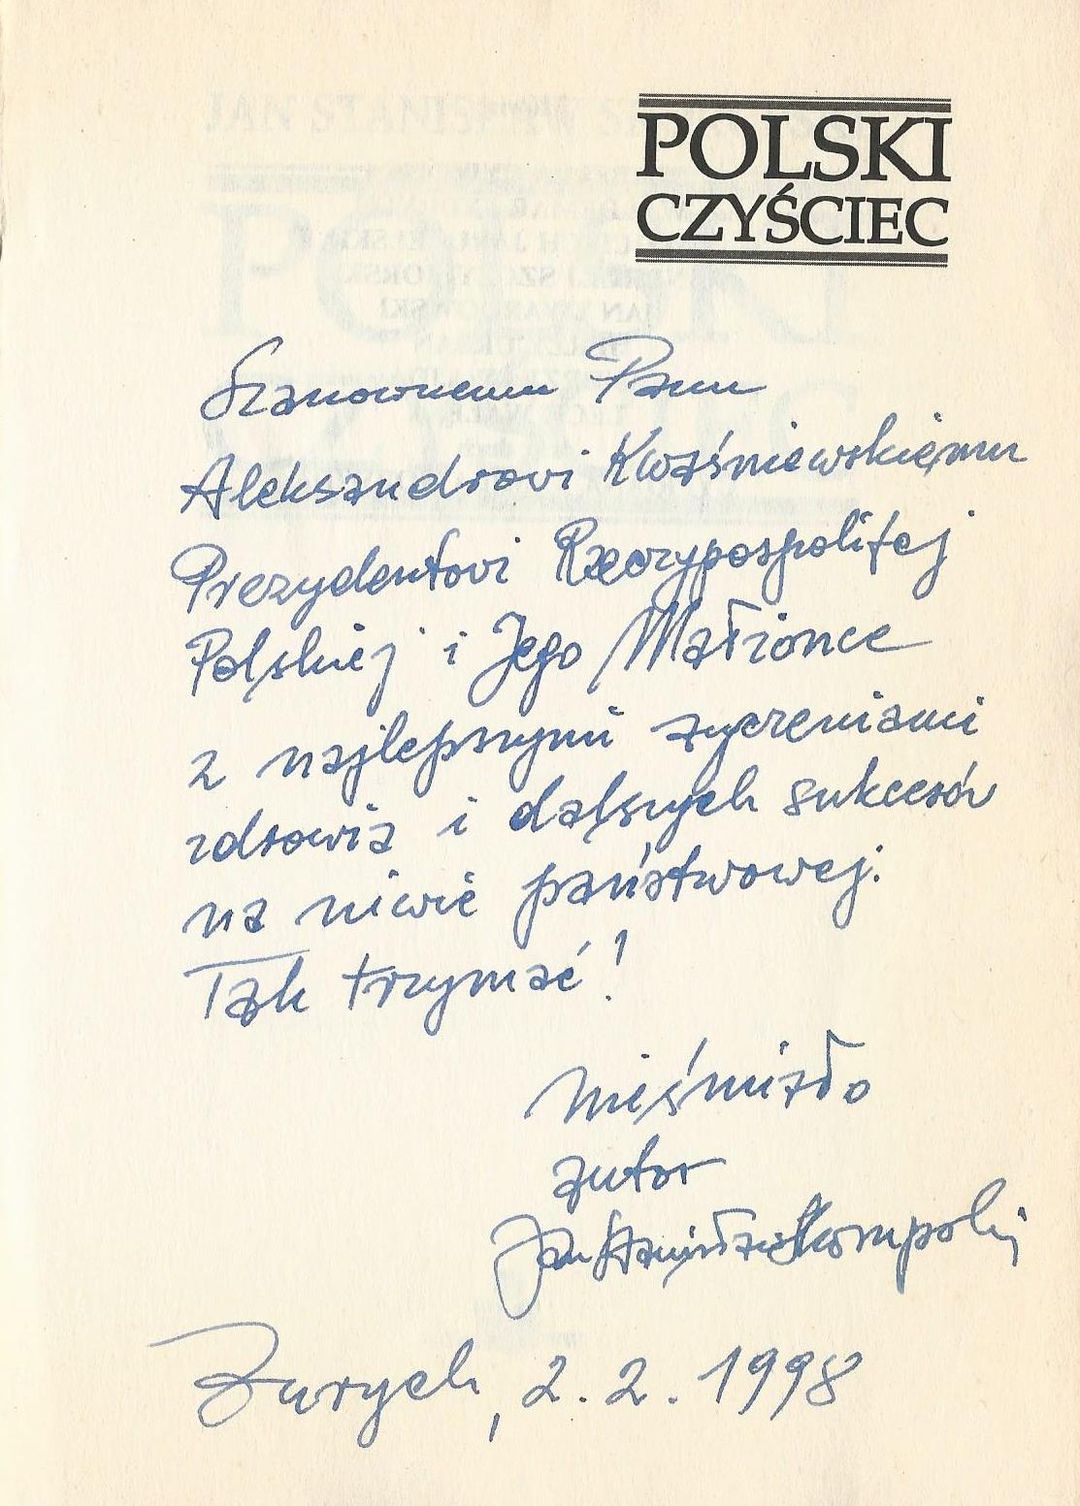 POLSKI
CZYŚCIEC
Szanownemu Panu
Aleksandrowi Kwaśniewskiemu
Prezydentowi Rzeczypospolitej
Polskiej i Jego Małżonce
z najlepszymi życzeniami
zdrowia i dalszych sukcesów
na niwie państwowej.
Tak trzymać!
autor
Jan Stanisław
Zurych, 2.2.1998